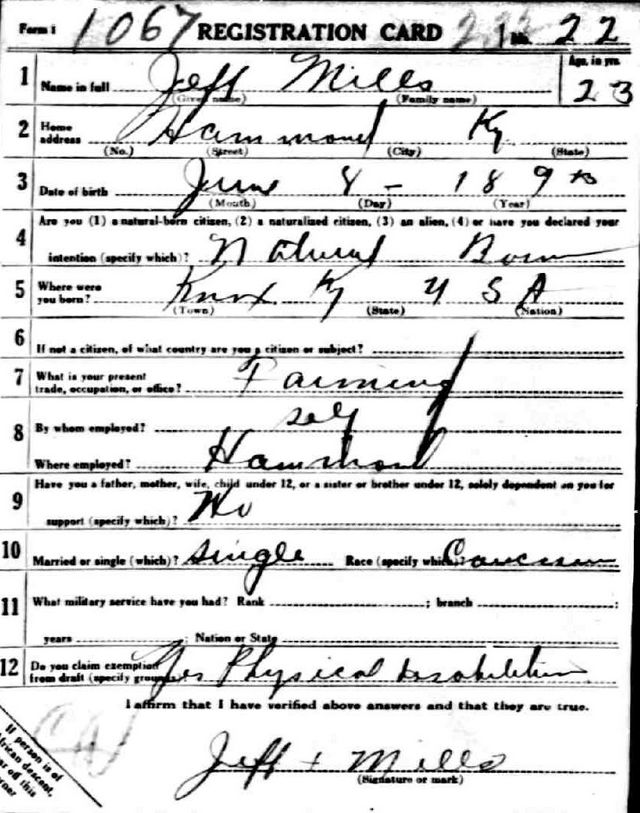 Form 1 1067 REGISTRATION CARD No. 22
1 Name in full Jeff Mills Age, in yrs. 23
(Given name) (Family name)
2 Home address Hammond Ky
(No.) (Street) (City) (State)
3 Date of birth June 8 - 189
(Month) (Day) (Year)
4 Are you (1) a natural-born citizen, (2) a naturalized citizen, (3) an alien, (4) or have you declared your
intention (specify which)? Natural Born
5 Where were you born? Knox Ky U S A
(Town) (State) (Nation)
6 If not a citizen, of what country are you a citizen or subject?
7 What is your present trade, occupation, or office? Farming
8 By whom employed? self
Where employed? Hammond
9 Have you a father, mother, wife, child under 12, or a sister or brother under 12, solely dependent on you for
support (specify which)? No
10 Married or single (which)? single Race (specify which)?
11 What military service have you had? Rank ; branch ;
years ; Nation or State
12 Do you claim exemption from draft (specify grounds)? Yes Physical
I affirm that I have verified above answers and that they are true.
If person is of
African descent,
off this
Jeff + Mills
(Signature or mark)